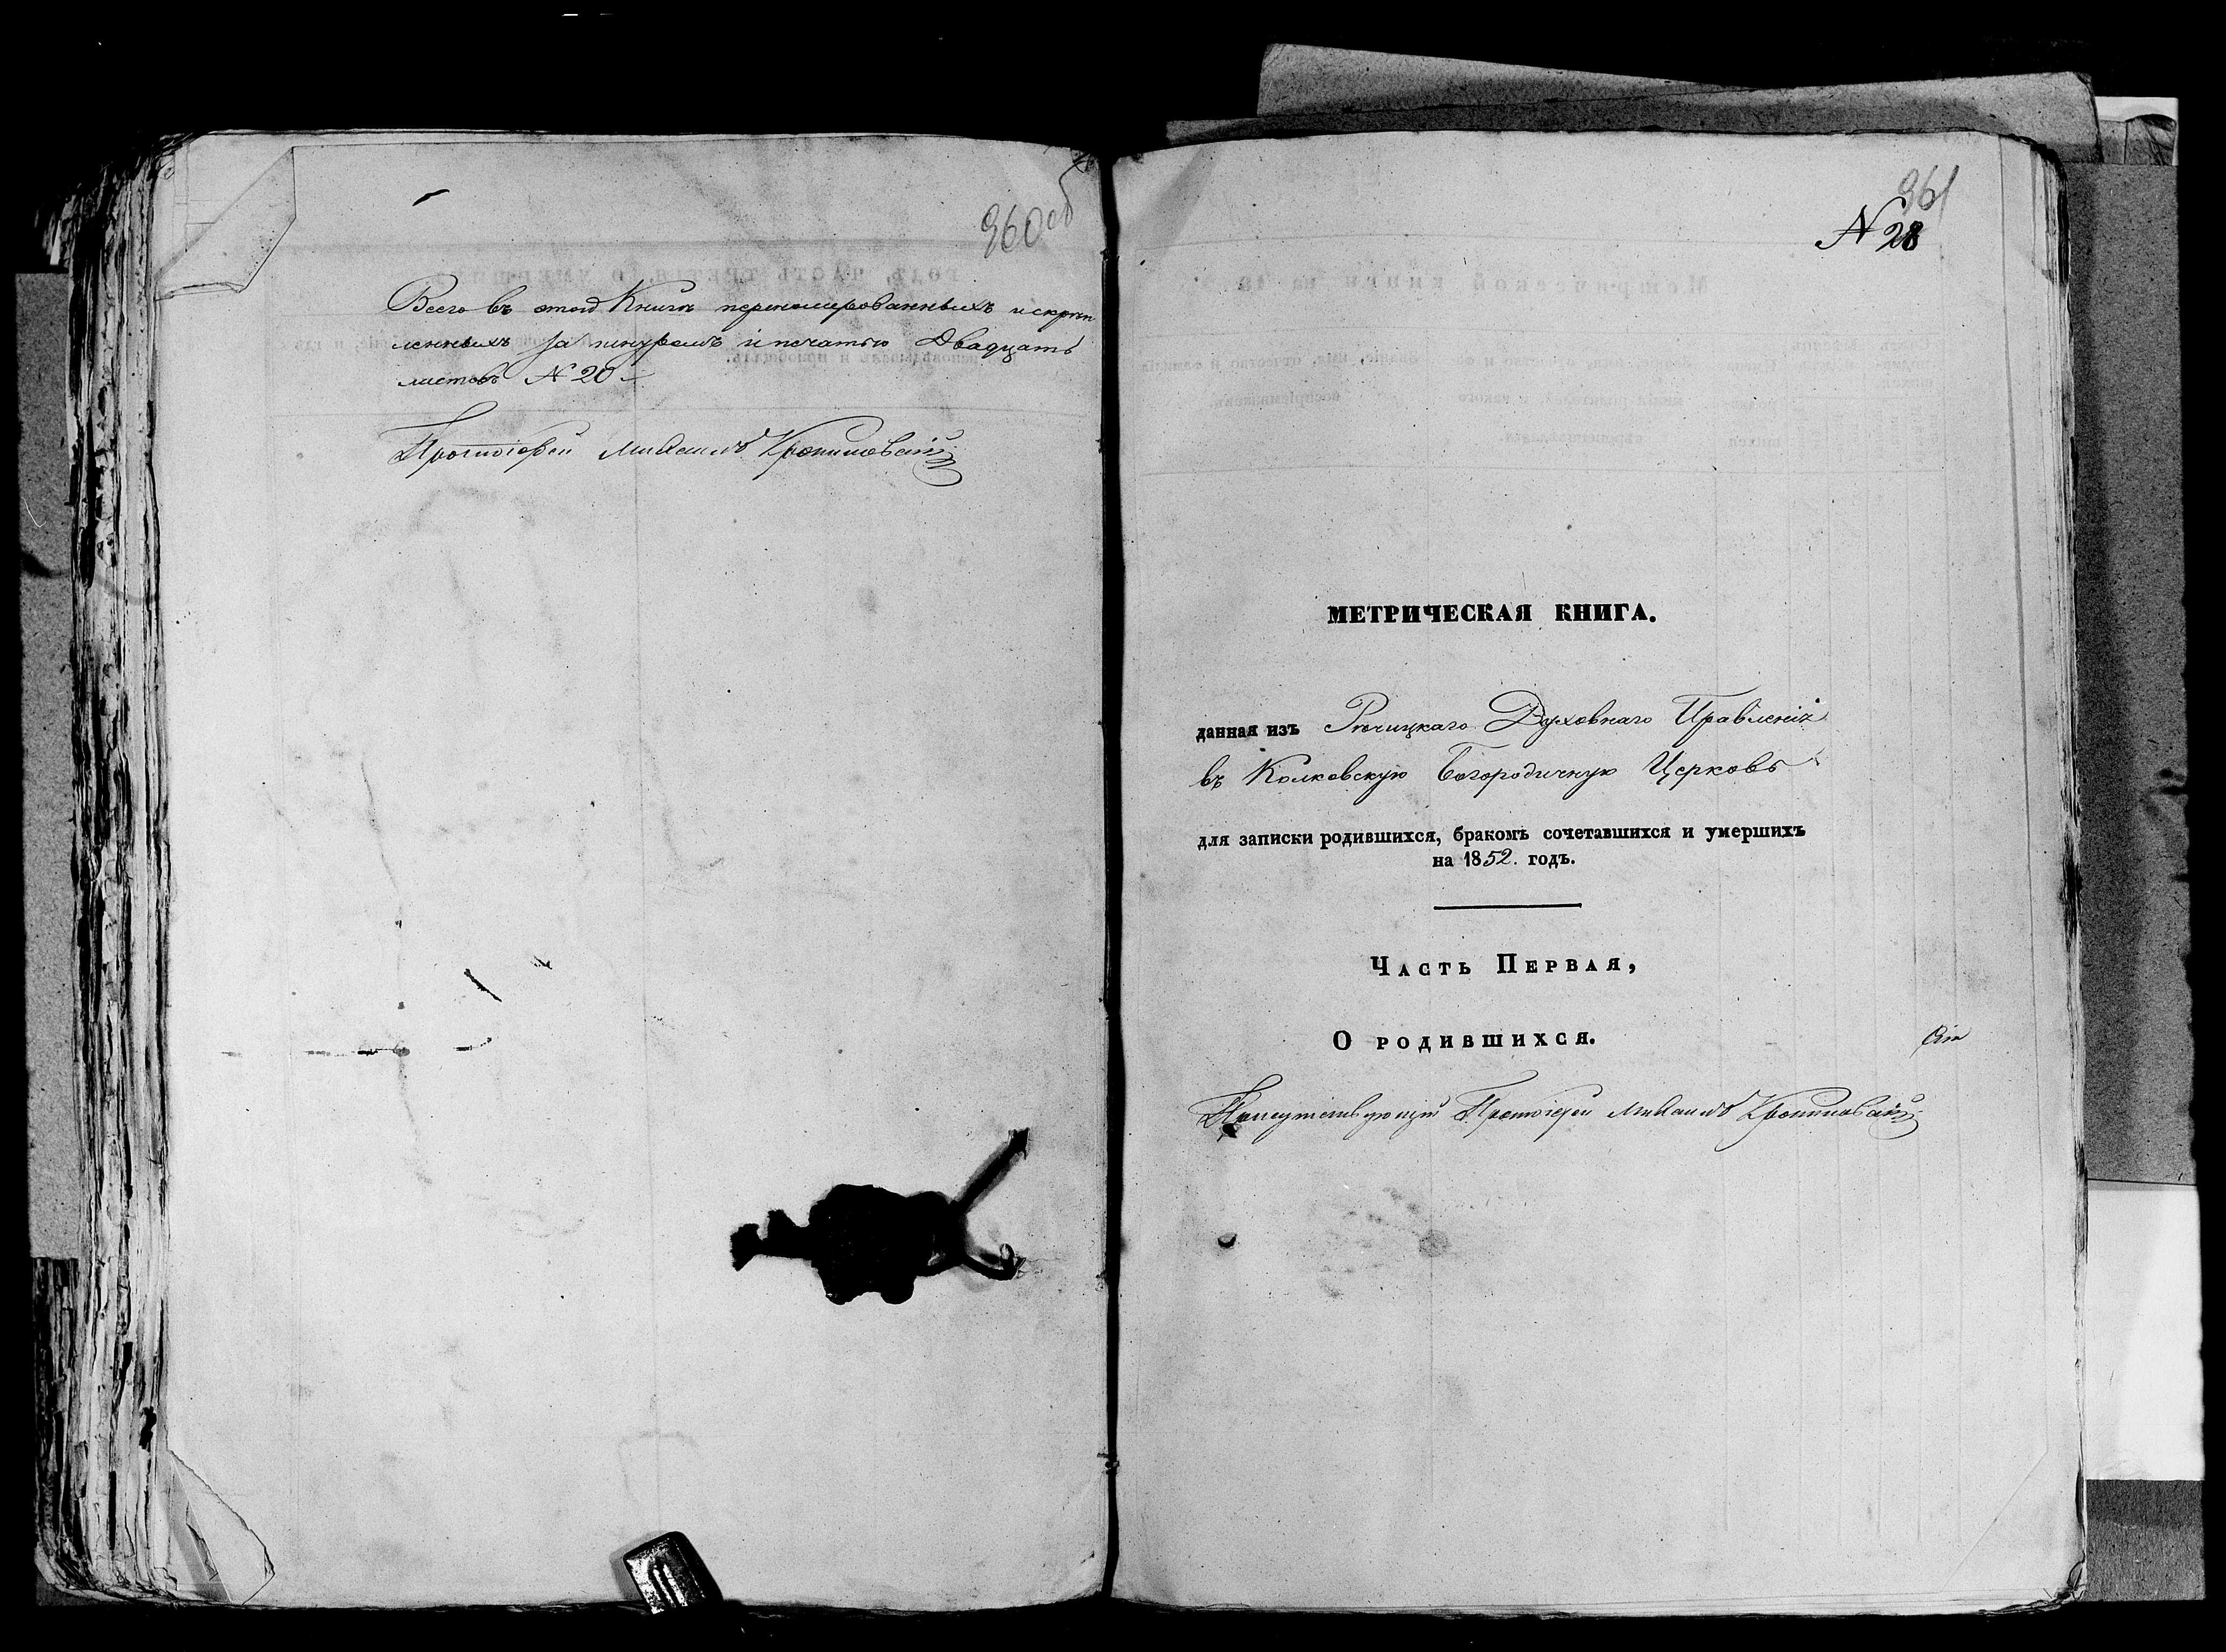 360 об
Всего въ этой Книгѣ переномерованныхъ искрѣп
ленныхъ за шнуромъ и печатью Двадцать
листовъ № 20
Протоіерей Михаилъ
361
№ 28
МЕТРИЧЕСКАЯ КНИГА.
данная изъ Рѣчицкаго Духовнаго Правленія
въ Колковскую Богородичную Церковь
для записки родившихся, бракомъ сочетавшихся и умершихъ
на 1852. годъ.
Часть Первая,
О родившихся.
Присутствующій Протоіерей Михаилъ